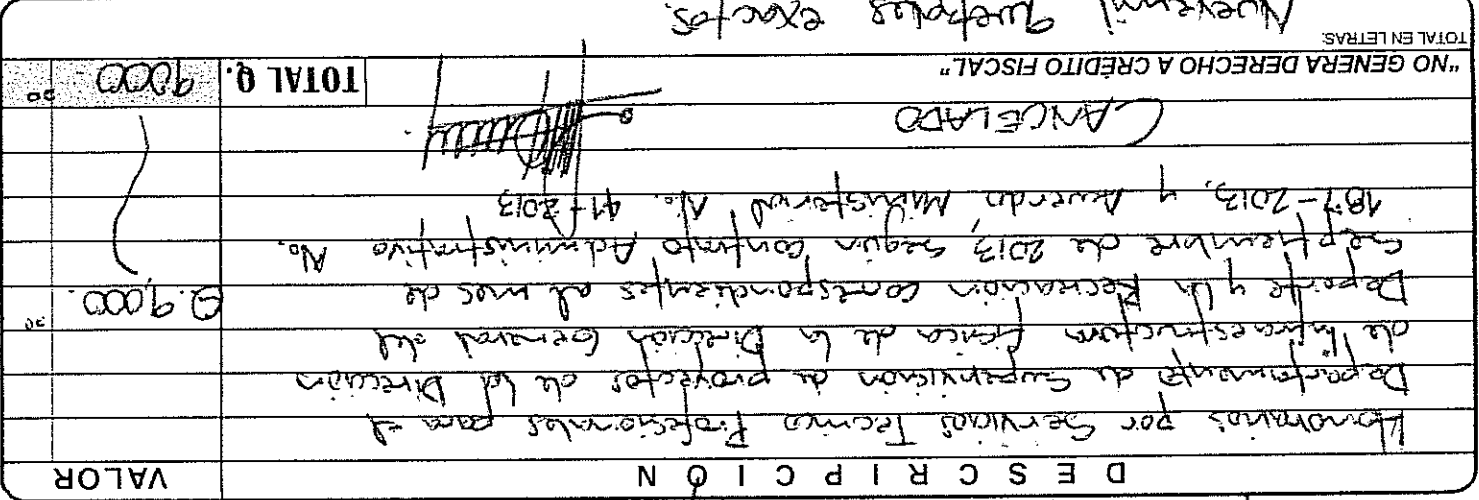 DESCRIPCIÓN VALOR
Honorarios por Servicios Tecnico Profesionales para el
Departamento de Supervisión de proyectos de la Dirección
de Infraestructura física de la Dirección General del
Deporte y la Recreación correspondientes al mes de Q.9,000.00
Septiembre de 2013, según contrato Administrativo No.
187-2013, y Acuerdo Ministerial No. 41-2013
CANCELADO
"NO GENERA DERECHO A CRÉDITO FISCAL" TOTAL Q. 9000 00
TOTAL EN LETRAS:
Nuevemil quetzales exactos.